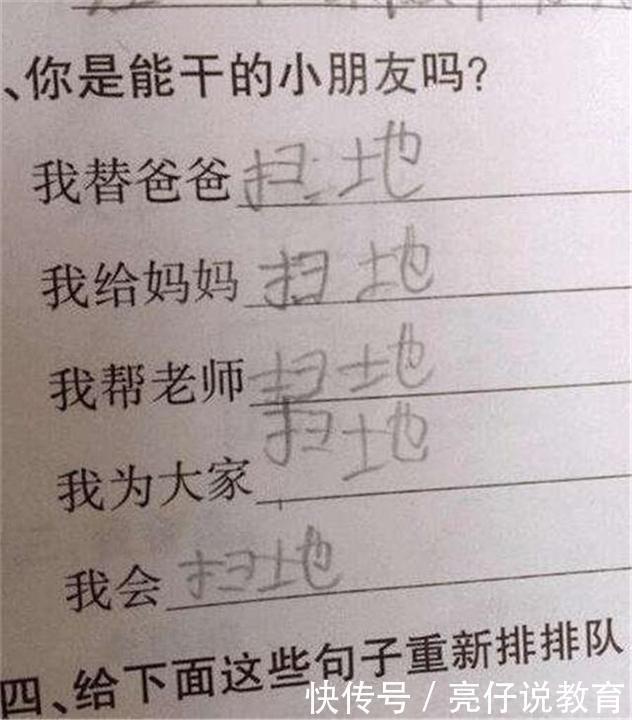 、你是能干的小朋友吗?
我替爸爸扫地
我给妈妈扫地
我帮老师扫地
我为大家扫地
我会扫地
四、给下面这些句子重新排排队
快传号 / 亮仔说教育